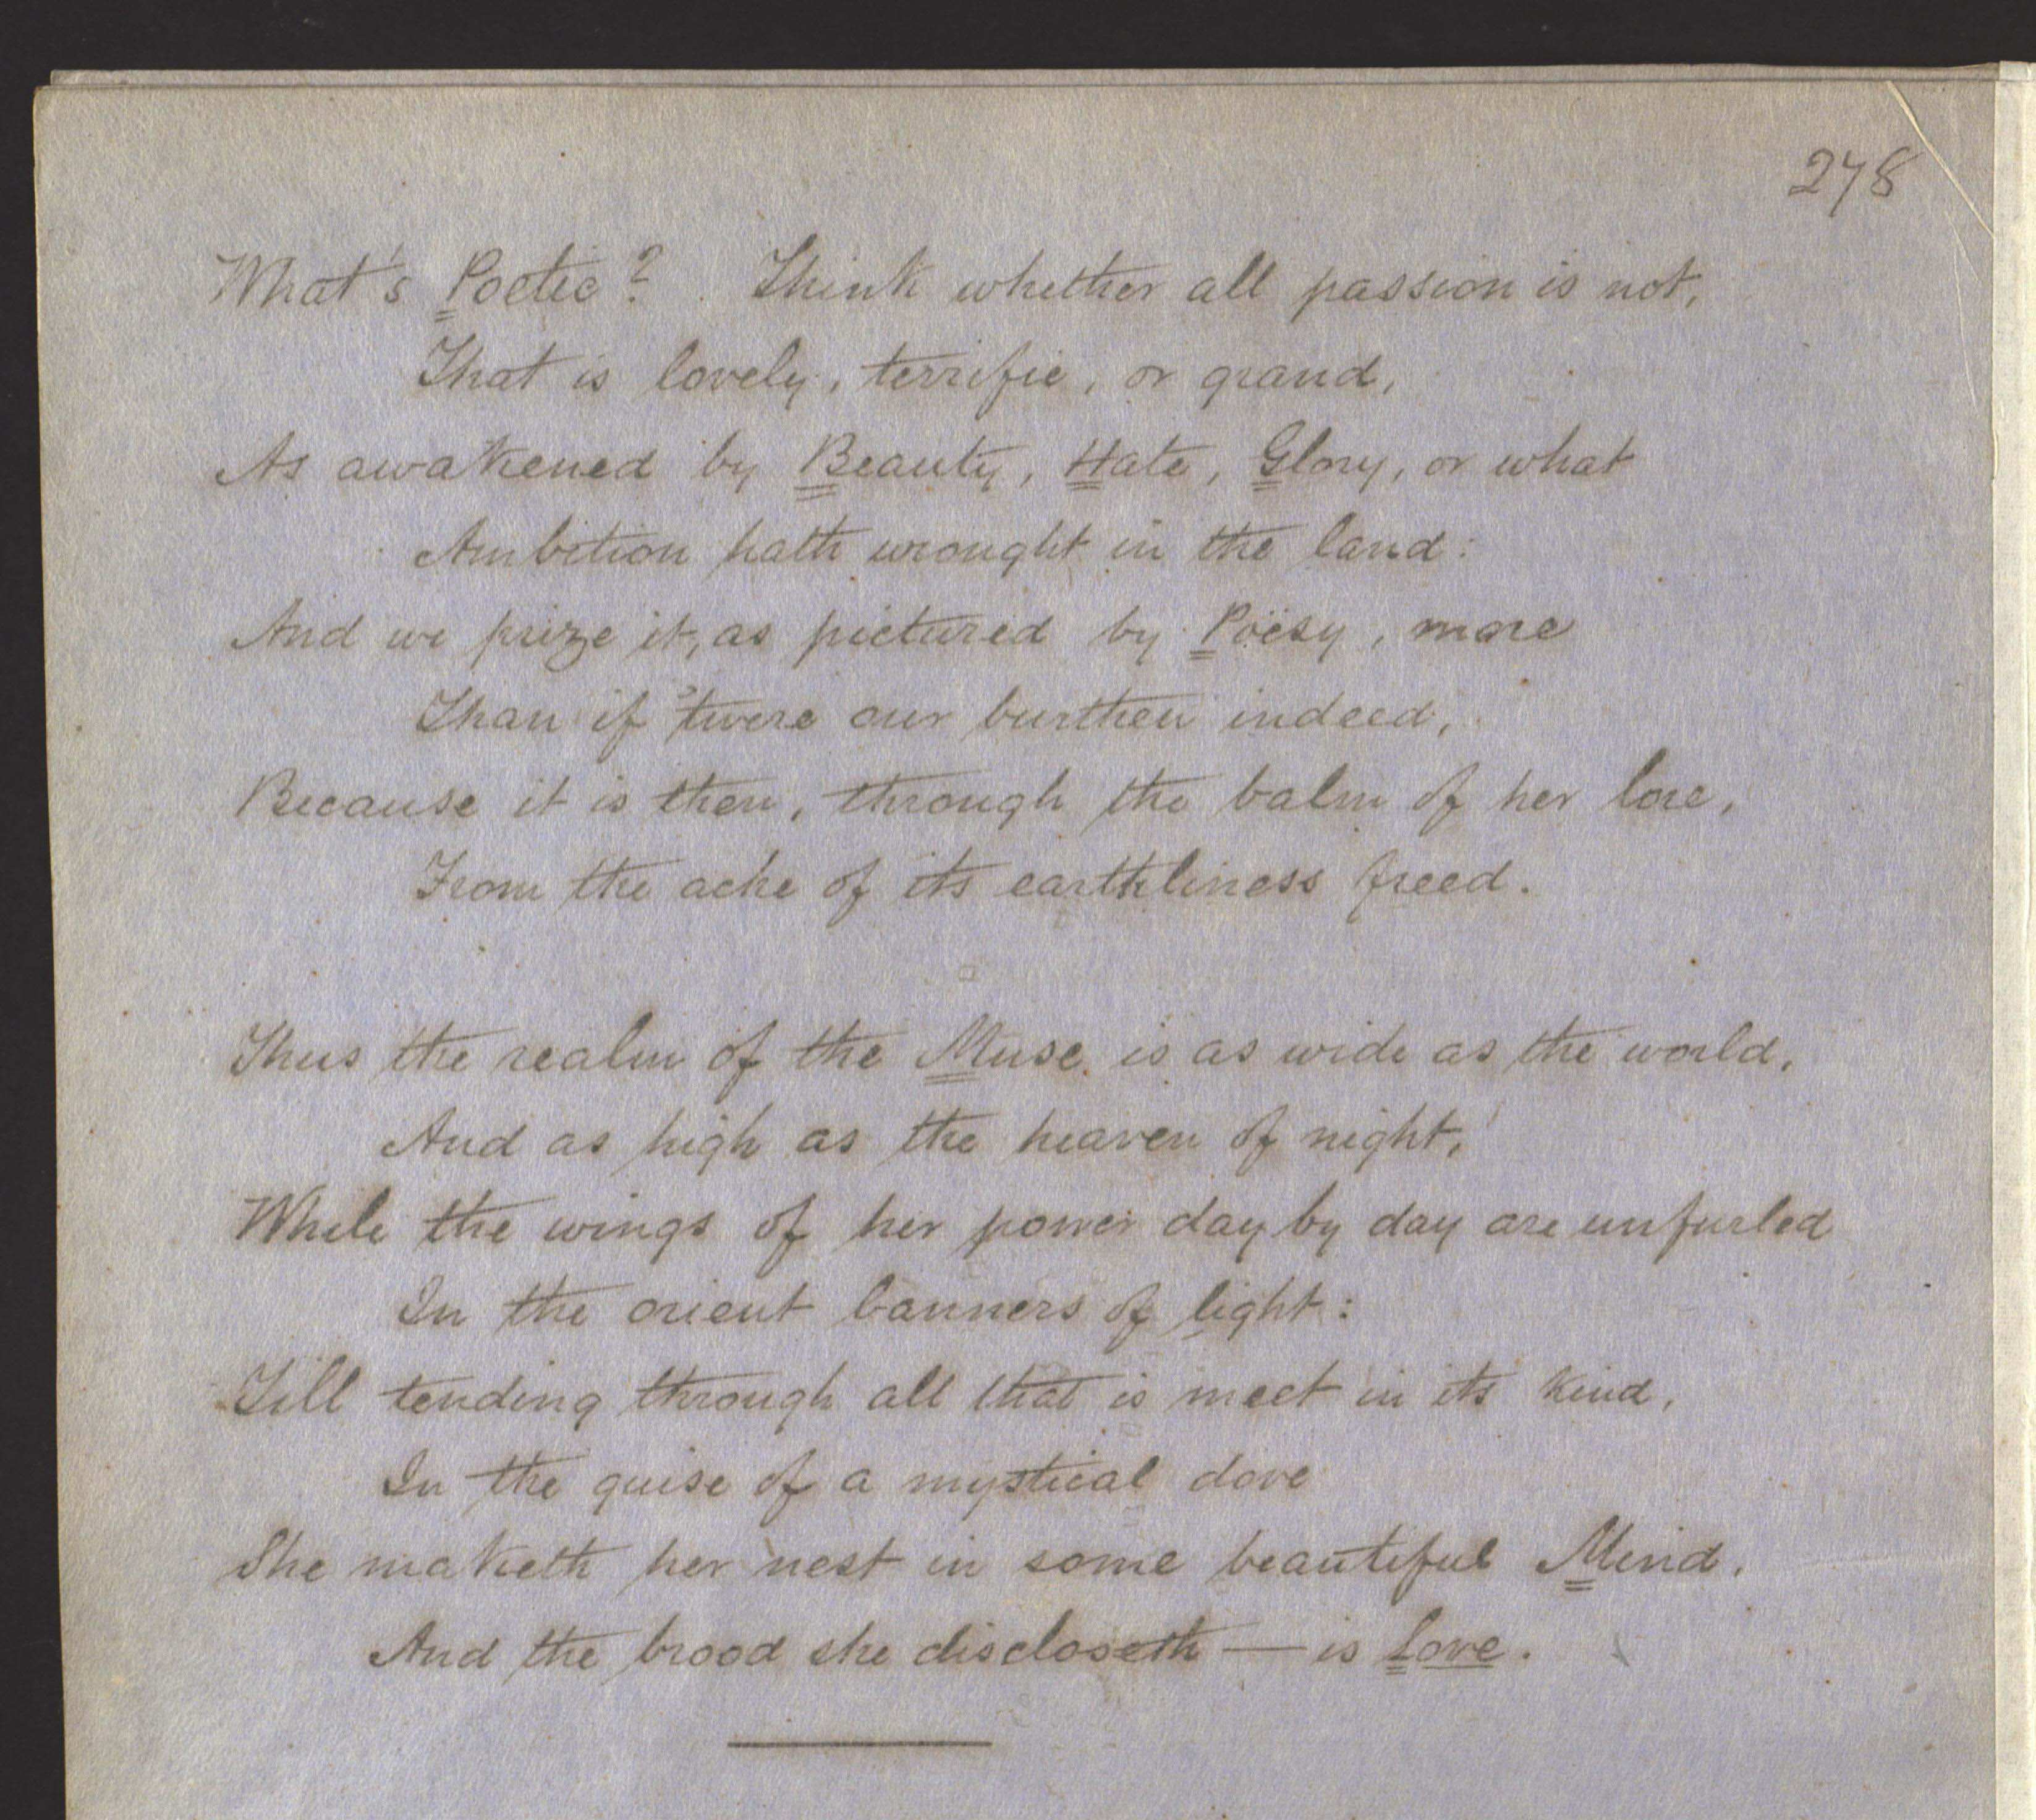 278
What's Poetic? Think whether all passion is not,
That is lovely, terrific, or grand,
As awakened by Beauty, Hate, Glory, or what
Ambition hath wrought in the land:
And we prize it, as pictured by Poësy, more
Than if 'twere our burthen indeed,
Because it is then, through the balm of her lore,
From the ache of its earthliness freed.
Thus the realm of the Muse is as wide as the world,
And as high as the heaven of night,
While the wings of her power day by day are unfurled
In the orient banners of light:
Till tending through all that is meet in its kind,
In the guise of a mystical dove
She maketh her nest in some beautiful Mind,
And the brood she discloseth — is Love.